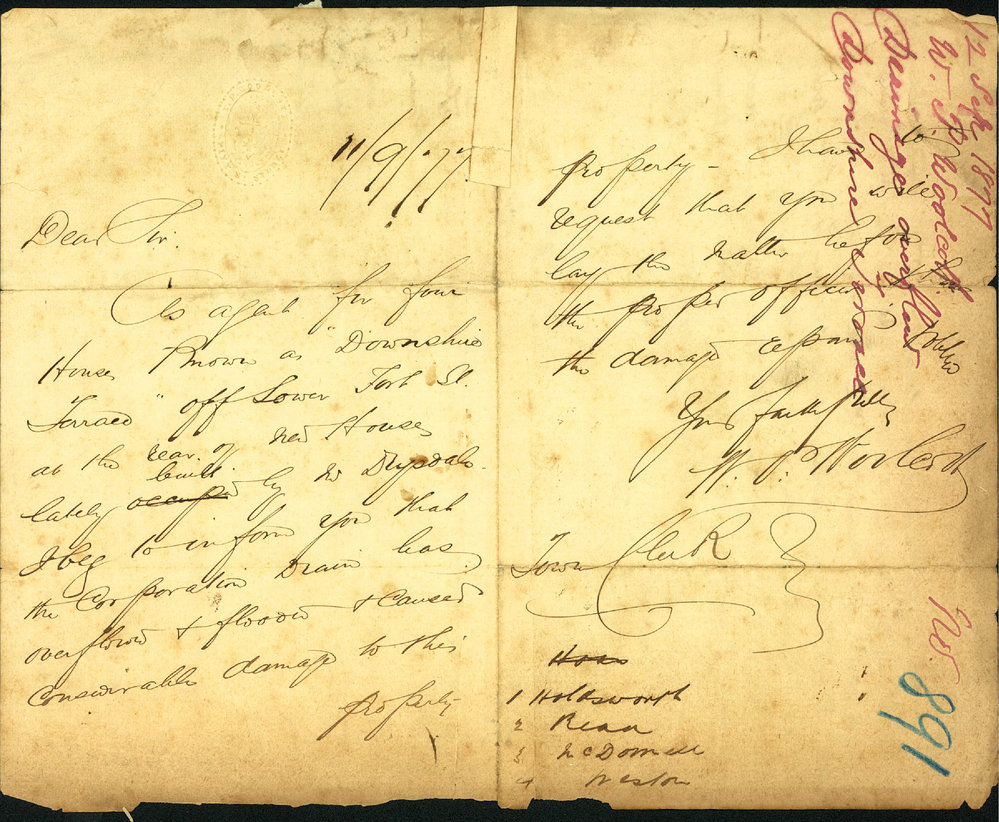 11/9/77
Dear Sir.
As agent for four
Houses Known as "Downshire
Terrace" off Lower Fort St.
at the rear of new Houses
lately occupied built by Mr Drysdale.
I beg to inform you that
the Corporation Drain has
overflowed & flooded & caused
considerable damage to this
property
property - I have to
request that you will
lay the matter before
the proper officer
the damage
Yrs faithfully
W. P. Woolcott
Town Clerk
1 Holdsworth
2 Read
3 McDonnell
4 Weston
12 Sep 1877
W. P. Woolcott
Drainage overflow
Downshire Terrace
No
891